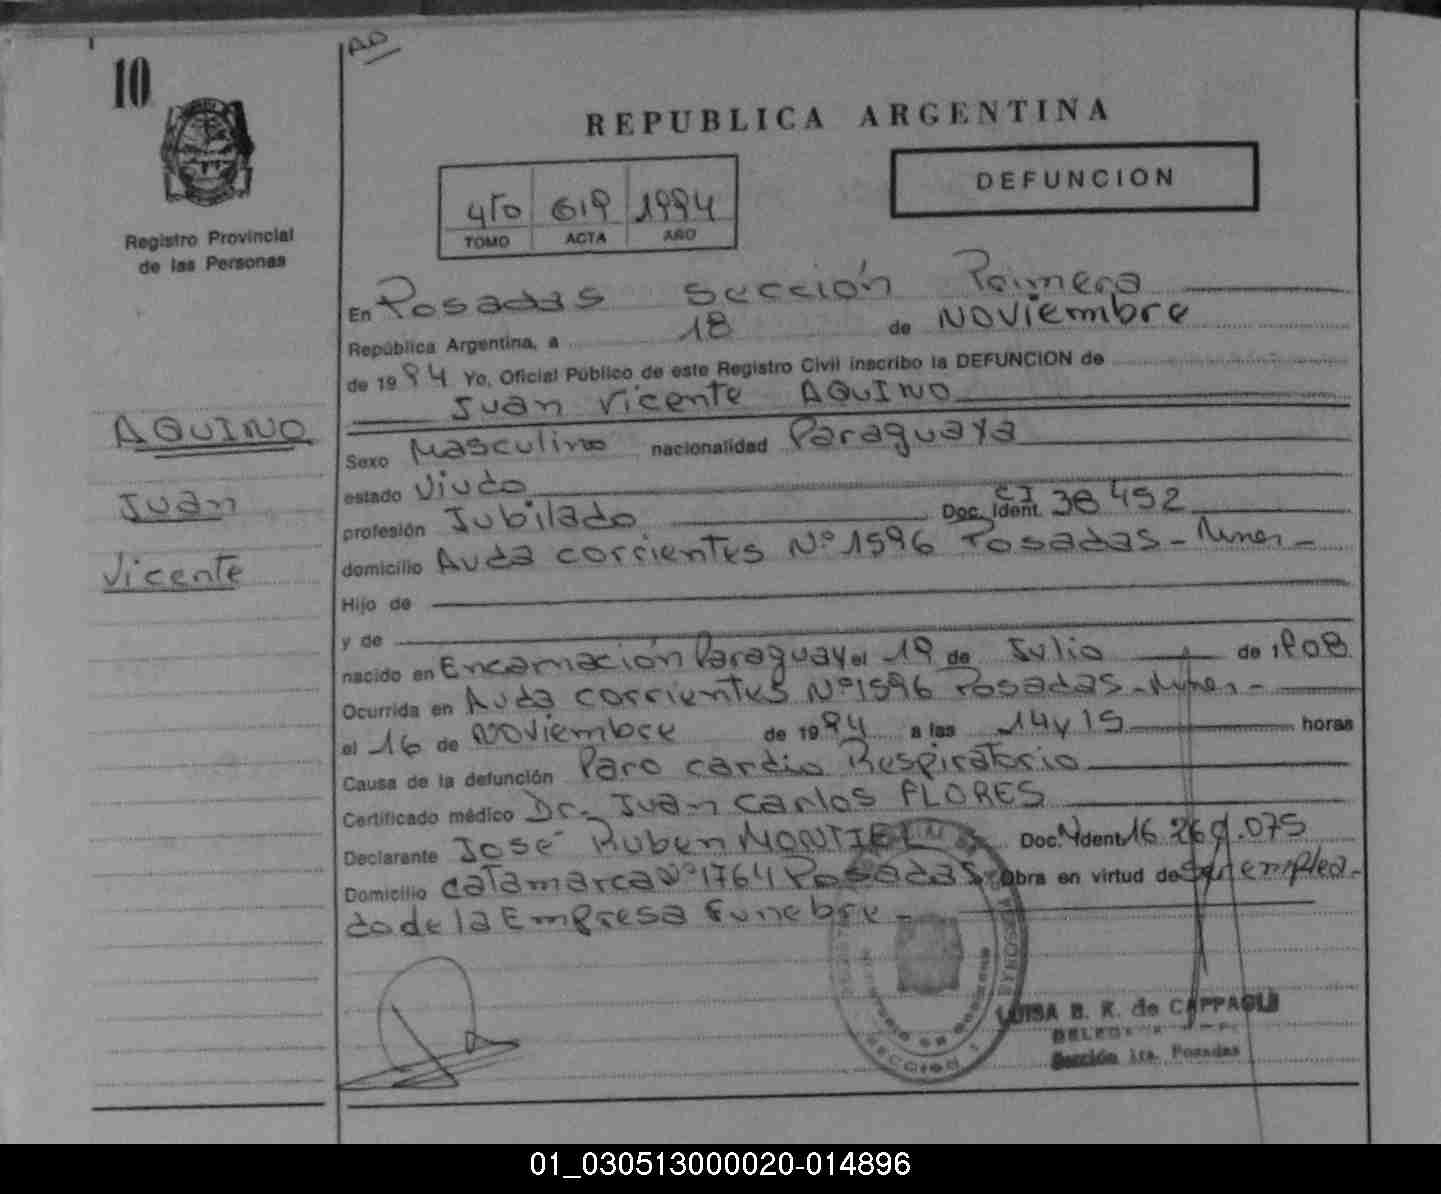 10
AD
REPUBLICA ARGENTINA
DEFUNCION
4to 619 1994
TOMO ACTA AÑO
Registro Provincial
de las Personas
En Posadas sección Primera
República Argentina, a 18 de Noviembre
de 1994 Yo, Oficial Público de este Registro Civil inscribo la DEFUNCION de
Juan Vicente AQUINO
AQUINO
Juan
Vicente
Sexo Masculino nacionalidad Paraguaya
estado Viudo
profesión Jubilado Doc. Ident. CI 38 452
domicilio Avda corrientes Nº 1596 Posadas -
Hijo de
y de
nacido en Encarnación Paraguay el 19 de Julio de 1908
Ocurrida en Avda corrientes Nº 1596 Posadas -
el 16 de Noviembre de 1994 a las 14 y 15 horas
Causa de la defunción Paro cardio Respiratorio
Certificado médico Dr. Juan Carlos FLORES
Declarante José Ruben MONTIEL Doc. Ident 16.269.075
Domicilio catamarca Nº 1764 Posadas Obra en virtud de ser emplea-
do de la Empresa Funebre -
SECCION 1
LUISA B. K. de CAPPAGLI
Sección 1ra. Posadas
01_030513000020-014896